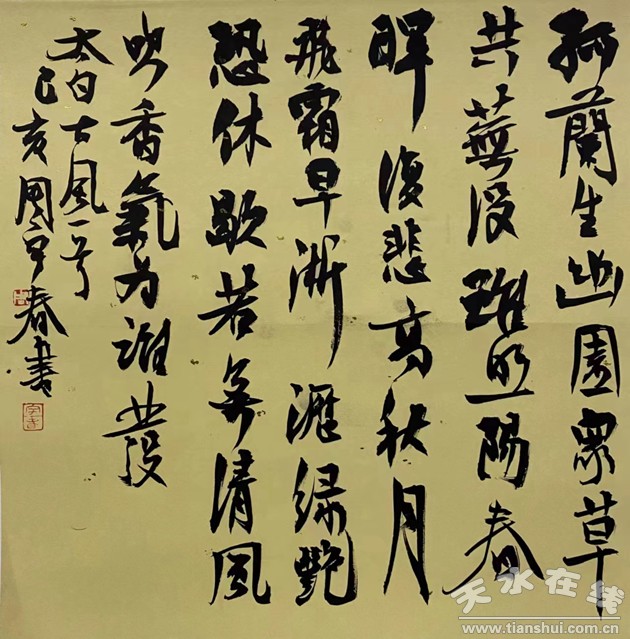 孤蘭生幽園眾草
共蕪没雖照陽春
暉復悲高秋月
飛霜早淅瀝緑艷
恐休歇若無清風
吹香氣為誰發
太白古風一首
己亥春書
天水在线
www.tianshui.com.cn